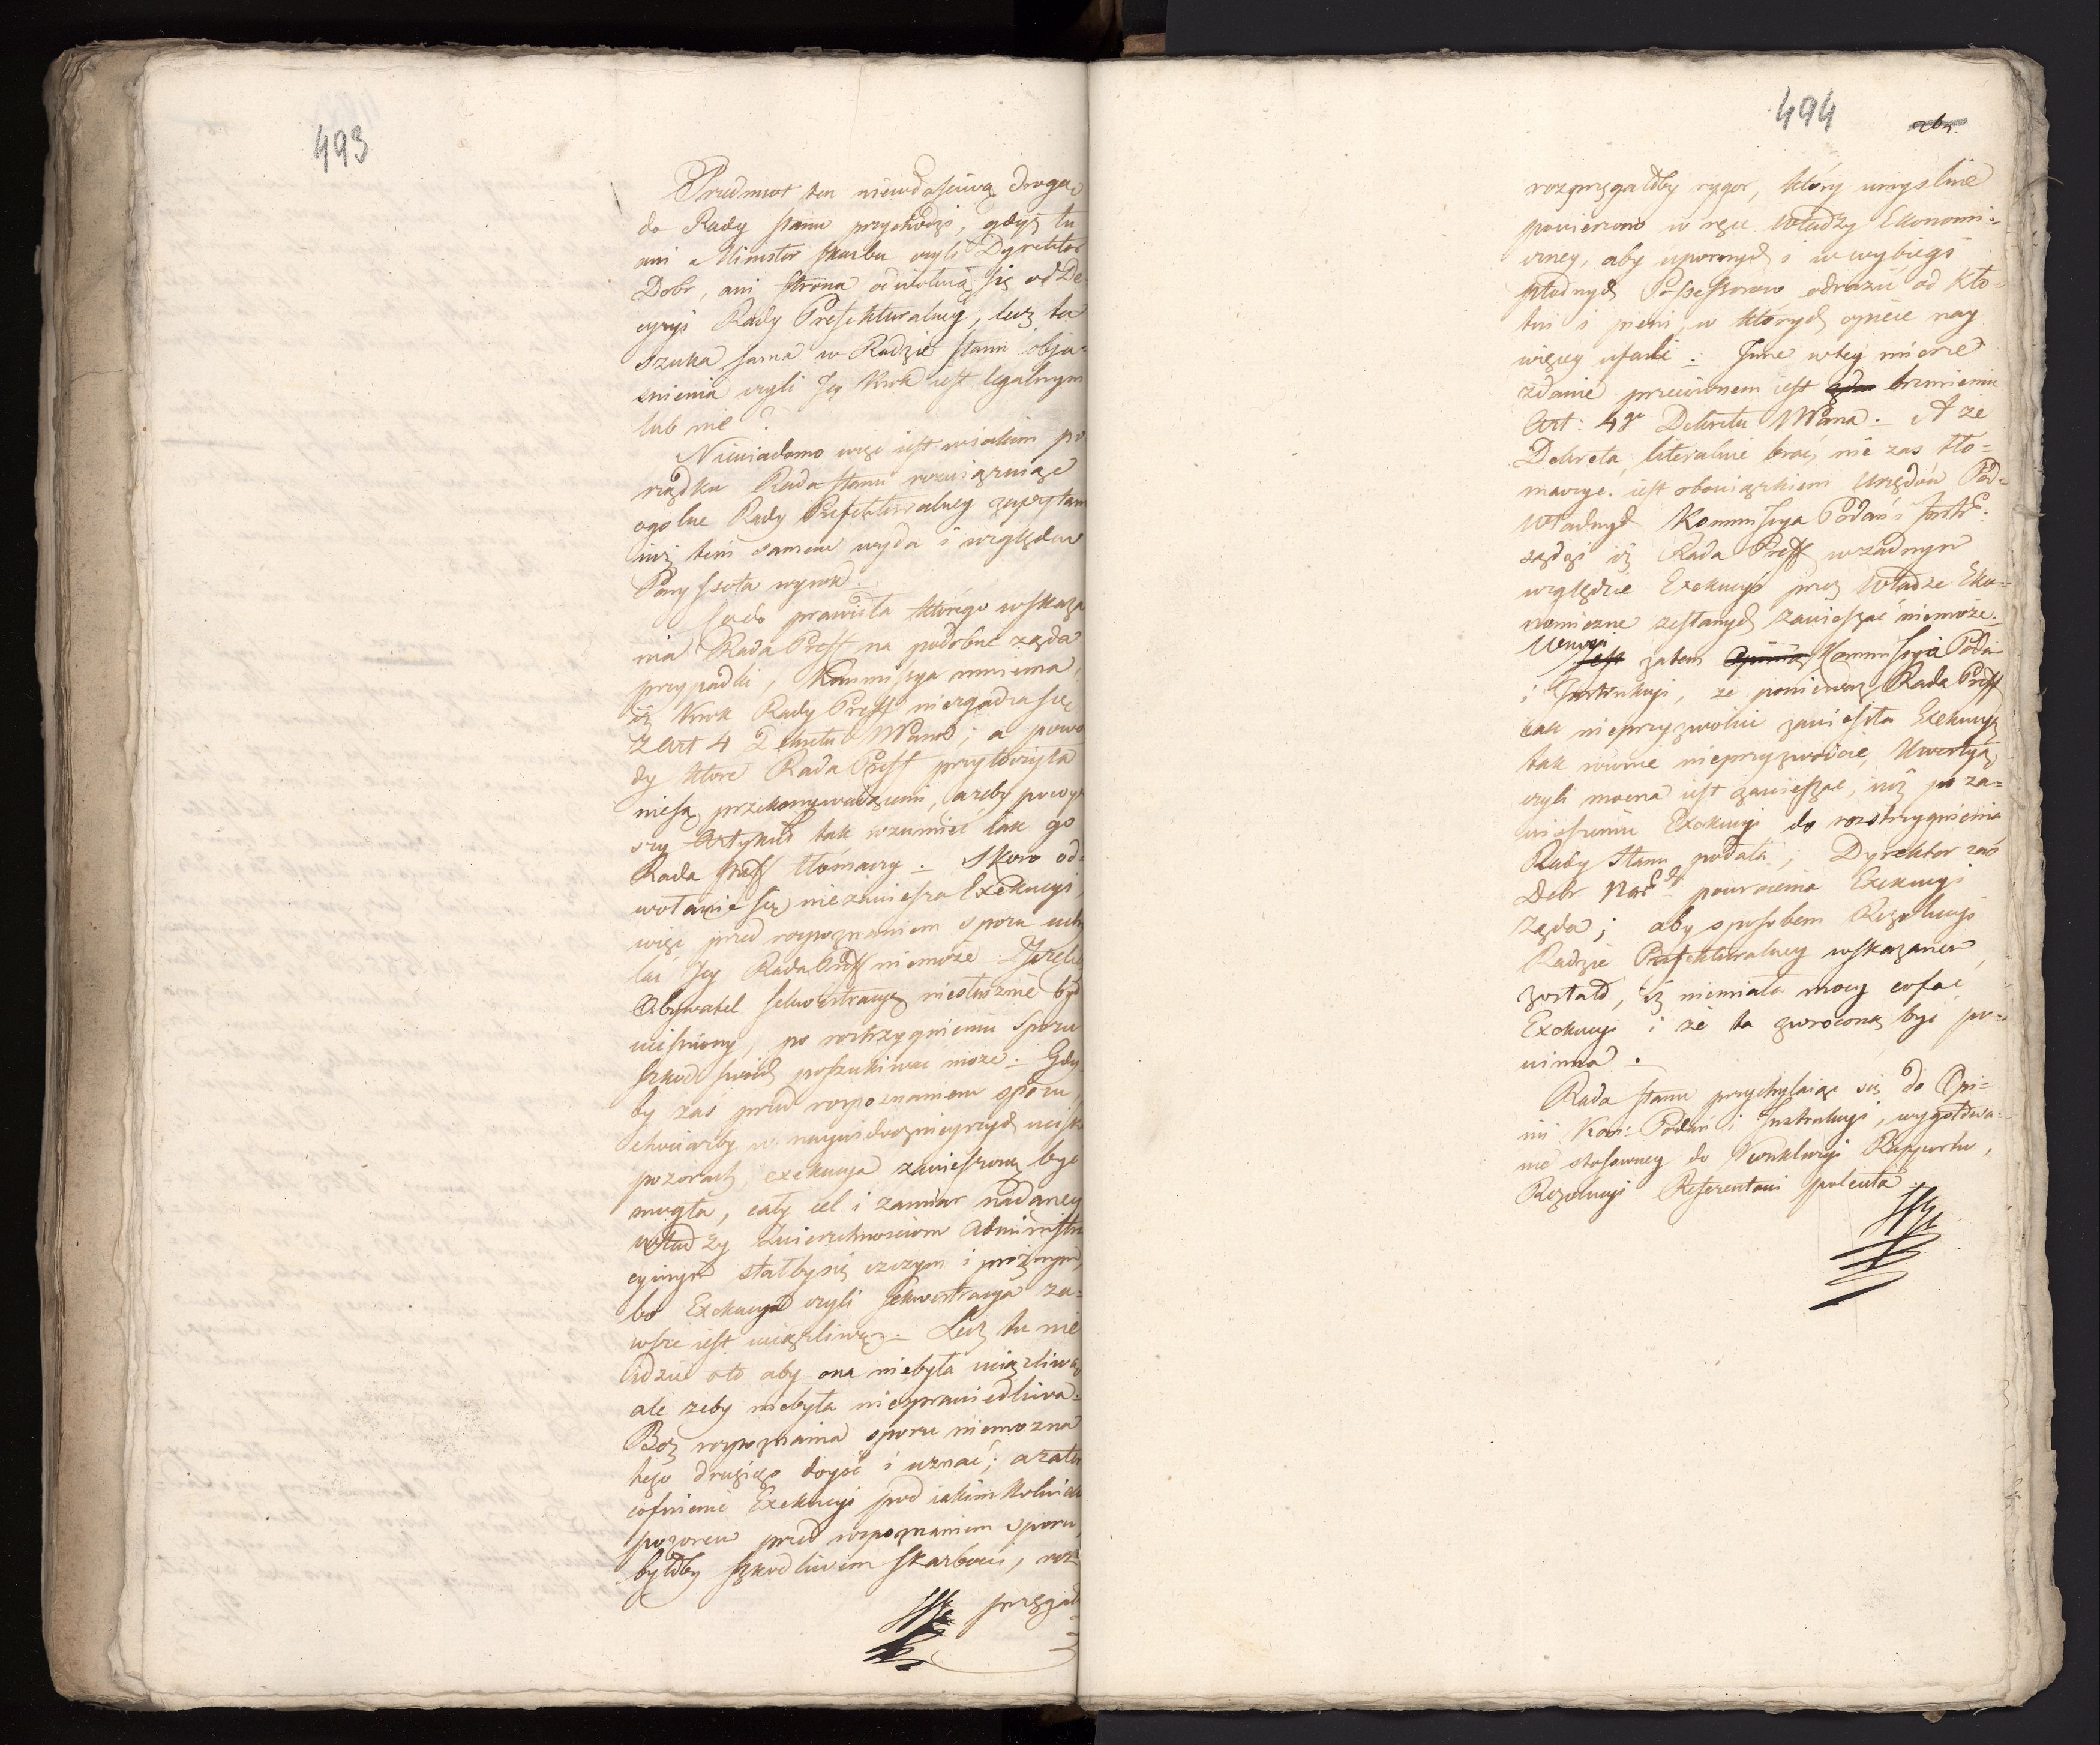 493
Przedmiot ten niewłaściwą drogą
do Rady Stanu przychodzi, gdyż tu
ani Minister Skarbu czyli Dyrektor
Dobr, ani strona odwołuią się od De
cyzyi Rady Prefekturalney, lecz ta
szuka sama w Radzie Stanu obia-
snienia czyli Jey krok iest legalnym
lub nie?
Niewiadomo więc iest w iakim po
rządku Rada Stanu rozwiązuiąc
ogolne Rady Prefekturalney zapytani
iuż tem samem wyda i względem
wyrok.
Co do prawidła którego wskaza
nia Rada Preff na podobne żąda
przypadki, Kommissya mniema,
iż krok Rady Preff niezgadza się
z Art 4 Dekretu; a powo
dy które Rada Preff przytoczyła
niesą przekonywaiącemi, ażeby powyż
szy Artykuł tak rozumieć iak go
Rada Preff tłómaczy. Skoro od-
wołanie się niezawiesza Exekucyi,
więc przed rozpoznaniem sporu uchy
lać Jey Rada Preff niemoże. Jeżeli
Obywatel sekwestracyą niesłusznie był
uciśniony, po rostrzygnieniu sporu
szkod swoich poszukiwać może. Gdy
by zaś przed rozpoznaniem sporu,
chociażby w naywidocznieyszych ucisku
pozorach, exekucya zawieszoną być
mogła, cały cel i zamiar nadaney
władzy Zwierzchnościom Administra
cyinym stałby się czczym i prożnym,
bo Exekucya czyli sekwestracya za-
wsze iest uciążliwą. Lecz tu nie
idzie oto aby ona niebyła uciążliwą,
ale żeby niebyła niesprawiedliwa.
Bez rozpoznania sporu niemożna
tego drugiego doyść i uznać; a zatem
cofnienie Exekucyi pod iakimkolwiek
pozorem przed rozpoznaniem sporu,
byłoby szkodliwem Skarbowi, roz
przęgał
494
rozprzęgałoby rygor, który umyslnie
powierzono w ręce władzy Ekonomi-
czney, aby upornych i w wybiegi
płodnych Possessorow odrazić od kło-
tni i pieni, w których oycie nay
więcey ufali. Inne w tey mierze
zdanie przeciwnem iest brzmieniu
Art: 4go Dekretu. A że
Dekreta literalnie brać, nie zas tło-
maczyć iest obowiązkiem Urzędów Pod-
władnych Kommissya Podań i Instr:
sądzi iż Rada Preff w żadnym
względzie Exekucyi przez Władze Eko-
nomiczne zesłanych zawieszać niemoże.
Wnosi
zatem Kommissya Poda
i Instrukcyi, że ponieważ Rada Preff
iak nieprzyzwoicie zawiesiła Exekucyą
tak równie nieprzyzwoicie, kwestyą
czyli mocna iest zawieszać, iuż po za-
wieszeniu Exekucyi do rozstrzygnienia
Rady Stanu podała; Dyrektor zaś
Dobr powrócenia Exekucyi
żąda; aby sposobem Rezolucyi
Radzie Prefekturalney wskazanem
zostało, iż niemiała mocy cofać
Exekucyi i że ta zwroconą być po-
winna.
Rada Stanu przychylaiąc się do Opi-
nii Kom: Podań i Instrukcyi, wygotowa-
nie stosowney do konkluzyi Rapportu,
Rezolucyi Referentowi poleciła.